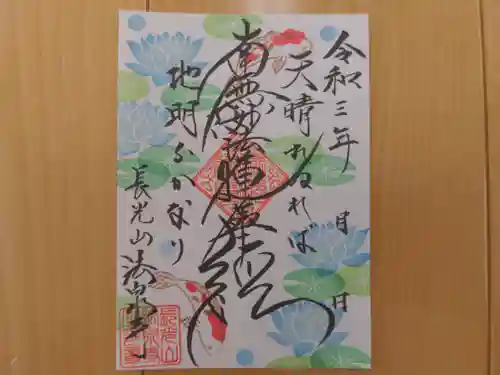 令和三年 月 日
天晴れぬれば
南無妙法蓮華経
地明らかなり
長光山 法泉寺